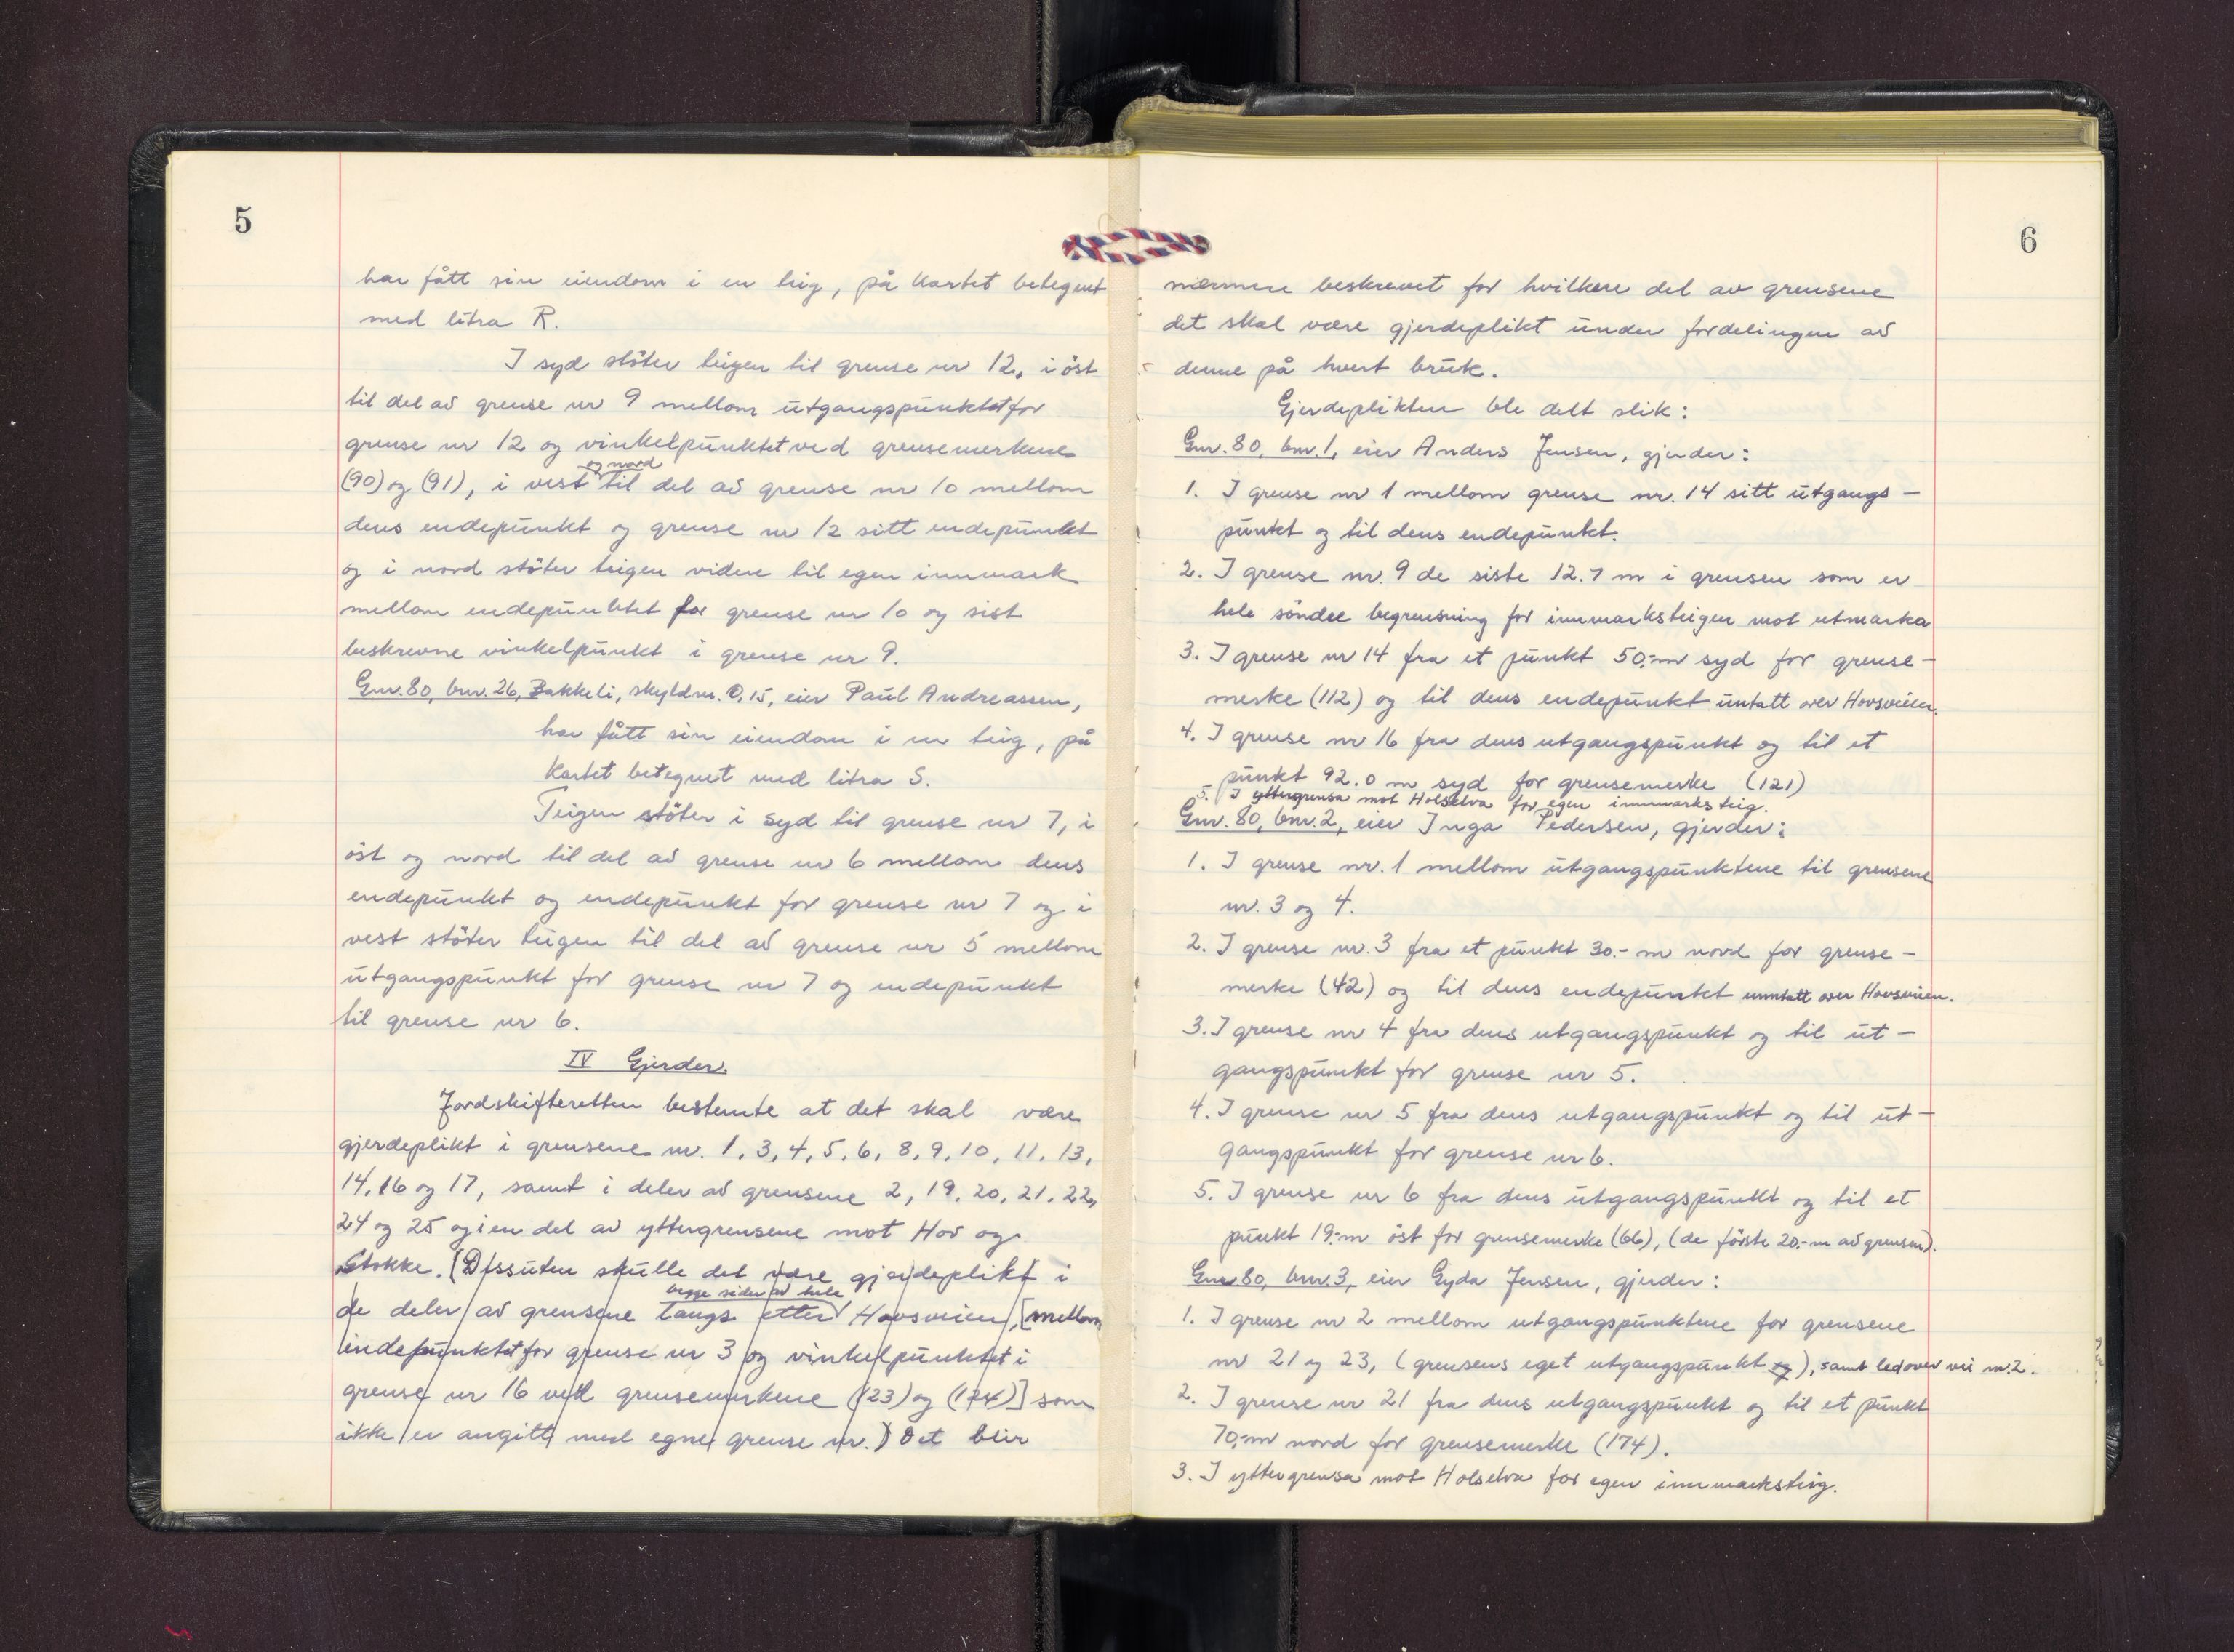 5
har fått sin eiendom i en teig, på kartet betegnet
med litra R.
I syd støter teigen til grense nr 12, i öst
til del av grense nr 9 mellom utgangspunktet for
grense nr 12 og vinkelpunktet ved grensemerkene
og nord
(90) og (91), i vest til del av grense nr 10 mellom
dens endepunkt og grense nr 12 sitt endepunkt
og i nord stöter teigen videre til egen innmark
mellom endepunktet for grense nr 10 og sist
beskrevne vinkelpunkt i grense nr 9.
Gnr. 80, bnr. 26, Bakkeli, skyldm. 0,15, eier Paul Andreassen,
har fått sin eiendom i en teig, på
kartet betegnet med litra S.
Teigen stöter i syd til grense nr 7, i
öst og nord til del av grense nr 6 mellom dens
endepunkt og endepunkt for grense nr 7 og i
vest stöter teigen til del av grense nr 5 mellom
utgangspunkt for grense nr 7 og endepunkt
til grense nr 6.
IV Gjerder.
Jordskifteretten bestemte at det skal være
gjerdeplikt i grensene nr. 1, 3, 4, 5, 6, 8, 9, 10, 11, 13,
14, 16 og 17, samt i deler av grensene 2, 19, 20, 21, 22,
24 og 25 og i en del av yttergrensene mot Hov og
Stokke. (Dessuten skulle det være gjerdeplikt i
begge sider av hele
de deler av grensene langs etter Hovsveien, [mellom
endepunktet for grense nr 3 og vinkelpunktet i
grense nr 16 ved grensemerkene (123) og (124)] som
ikke er angitt med egne grense nr.) Det blir
6
nærmere beskrevet for hvilkere del av grensene
det skal være gjerdeplikt under fordelingen av
denne på hvert bruk.
Gjerdeplikten ble delt slik:
Gnr. 80, bnr. 1, eier Anders Jensen, gjerder:
1. I grense nr 1 mellom grense nr. 14 sitt utgangs-
punkt og til dens endepunkt.
2. I grense nr. 9 de siste 12.7 m i grensen som er
hele söndre begrensning for innmarksteigen mot utmarka
3. I grense nr 14 fra et punkt 50,-m syd for grense-
merke (112) og til dens endepunkt untatt over Hovsveien.
4. I grense nr 16 fra dens utgangspunkt og til et
punkt 92.0 m syd for grensemerke (121)
5. I yttergrensa mot Holselva for egen innmarksteig.
Gnr. 80, bnr. 2, eier Inga Pedersen, gjerder:
1. I grense nr. 1 mellom utgangspunktene til grensene
nr. 3 og 4.
2. I grense nr. 3 fra et punkt 30.- m nord for grense-
merke (42) og til dens endepunktet unntatt over Hovsveien.
3. I grense nr 4 fra dens utgangspunkt og til ut-
gangspunkt for grense nr 5.
4. I grense nr 5 fra dens utgangspunkt og til ut-
gangspunkt for grense nr 6.
5. I grense nr 6 fra dens utgangspunkt og til et
punkt 19.-m öst for grensemerke (66), (de förste 20.-m av grensen).
Gnr 80, bnr. 3, eier Gyda Jensen, gjerder:
1. I grense nr 2 mellom utgangspunktene for grensene
nr 21 og 23, (grensens eget utgangspunkt og), samt led over vei nr. 2.
2. I grense nr 21 fra dens utgangspunkt og til et punkt
70,-m nord for grensemerke (174).
3. I yttergrensa mot Holselva for egen innmarksteig.